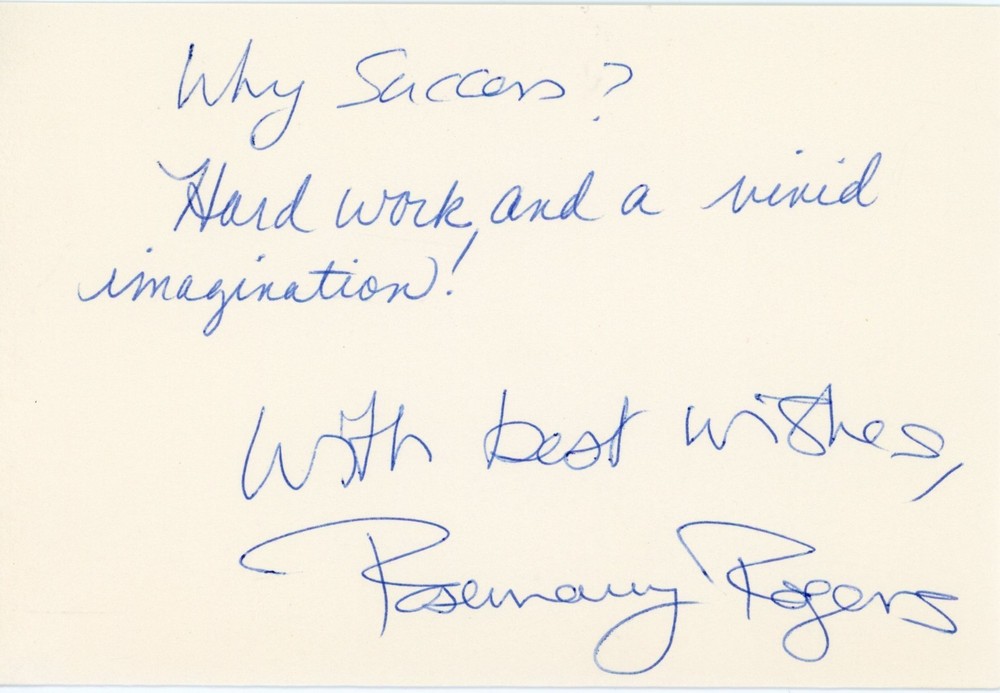 Why Success?
Hard work, and a vivid
imagination!
With best wishes,
Rosemary Rogers